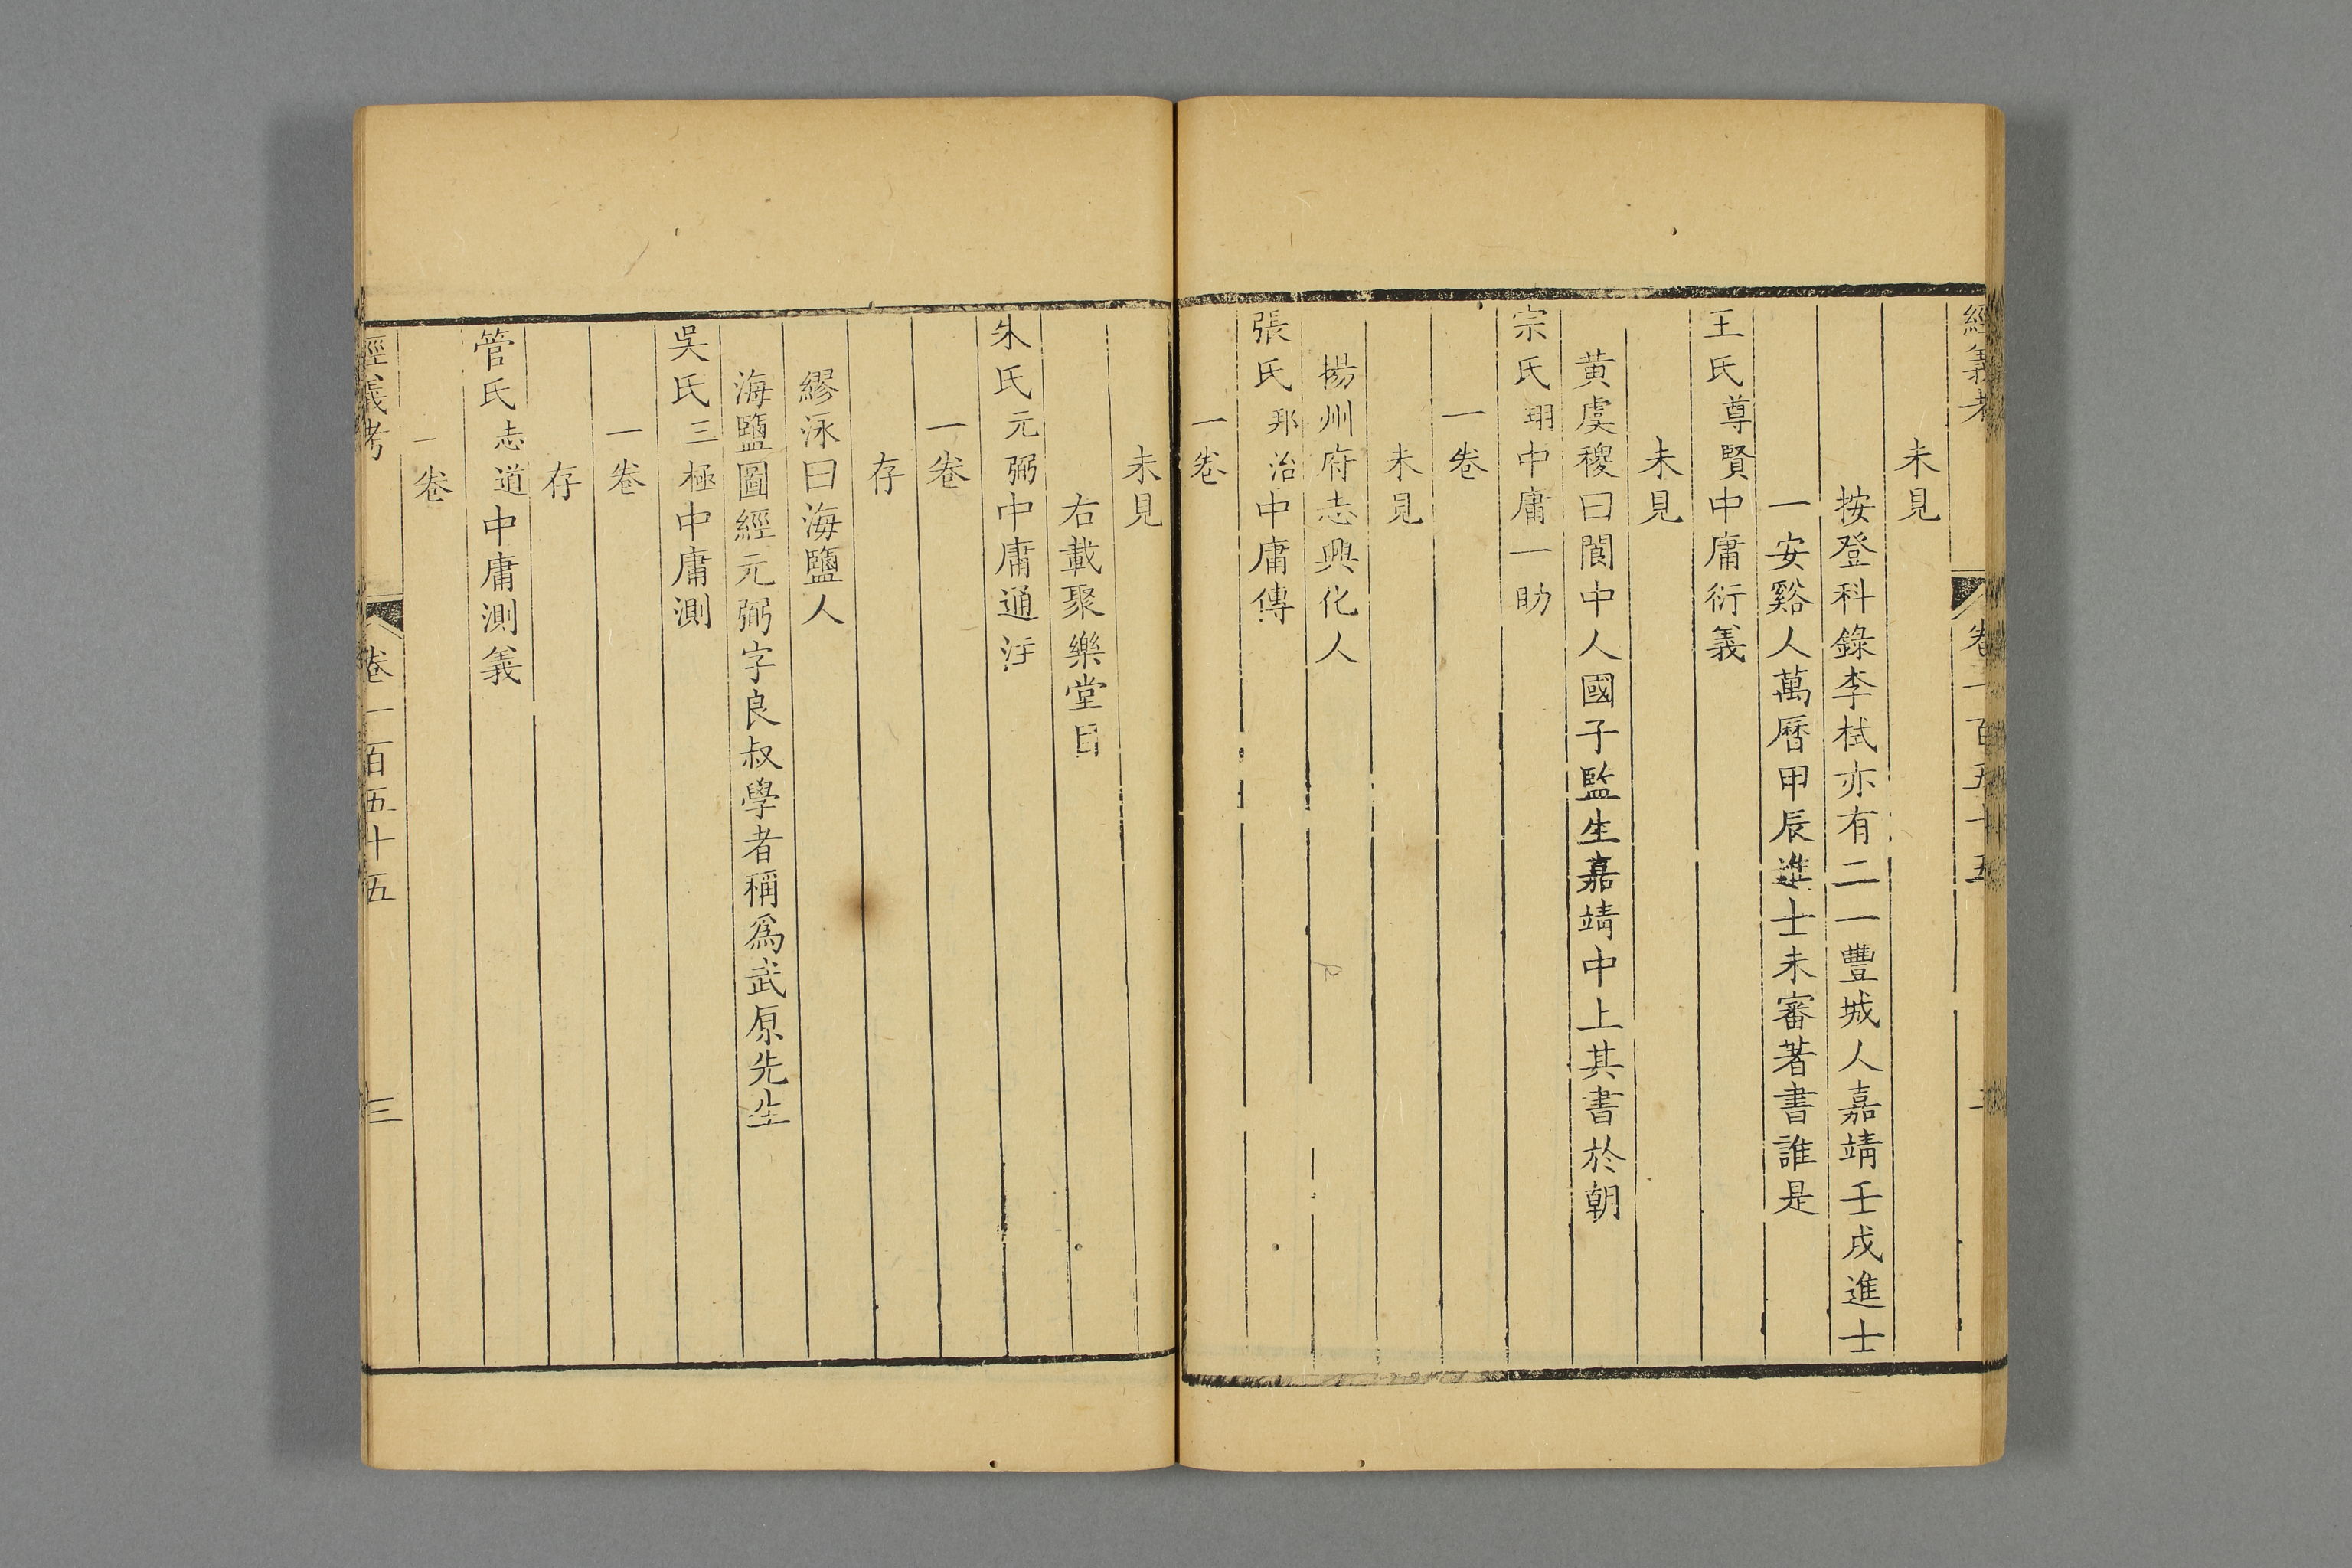 經義考 卷一百五十五 二
未見
按登科錄李栻亦有二一豐城人嘉靖壬戌進士
一安谿人萬曆甲辰進士未審著書誰是
王氏尊賢中庸衍義
未見
黄虞稷曰閬中人國子監生嘉靖中上其書於朝
宗氏𤦎中庸一助
一卷
未見
揚州府志興化人
張氏邦治中庸傳
一卷
未見
右載聚樂堂目
朱氏元弼中庸通注
一卷
存
繆泳曰海鹽人
海鹽圖經元弼字良叔學者稱爲武原先生
吳氏三極中庸測
一卷
存
管氏志道中庸測義
一卷
經義考 卷一百五十五 三